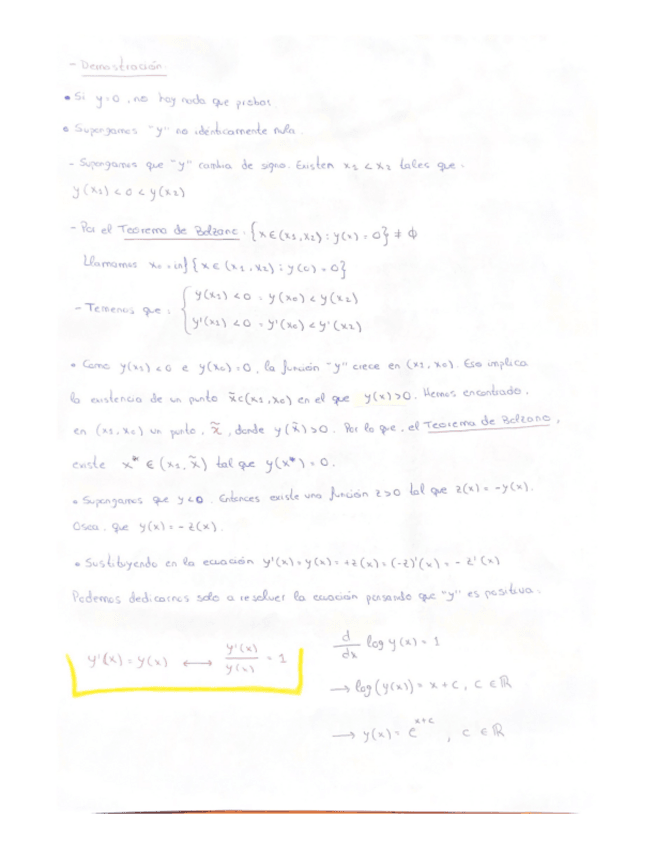 - Demostración.
• Si y=0, no hay nada que probar.
• Supongamos "y" no idénticamente nula.
- Supongamos que "y" cambia de signo. Existen x₁ < x₂ tales que:
y(x₁) < 0 < y(x₂)
- Por el Teorema de Bolzano: {x ∈ (x₁,x₂) : y(x) = 0} ≠ ϕ
Llamamos x₀ = inf {x ∈ (x₁,x₂) : y(0) = 0}
- Tenemos que: { y(x₁) < 0 = y(x₀) < y(x₂)
y'(x₁) < 0 = y'(x₀) < y'(x₂)
• Como y(x₁) < 0 e y(x₀) = 0, la función "y" crece en (x₁, x₀). Eso implica
la existencia de un punto x̃ ∈ (x₁,x₀) en el que y(x) > 0. Hemos encontrado,
en (x₁, x₀) un punto, x̃, donde y(x̃) > 0. Por lo que, el Teorema de Bolzano,
existe x* ∈ (x₁, x̃) tal que y(x*) = 0.
• Supongamos que y < 0. Entonces existe una función z > 0 tal que z(x) = -y(x).
Osea, que y(x) = - z(x).
• Sustituyendo en la ecuación y'(x) = y(x) = +z(x) = (-z)'(x) = - z'(x)
Podemos dedicarnos solo a resolver la ecuación pensando que "y" es positiva.
y'(x) = y(x) ⟷ y'(x)/y(x) = 1
d/dx log y(x) = 1
→ log(y(x)) = x + c, c ∈ ℝ
→ y(x) = e^(x+c), c ∈ ℝ